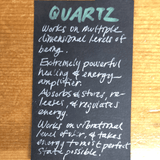 QUARTZ
Works on multiple
dimensional levels of
being.
Extremely powerful
healing & energy
amplifier.
Absorbs, stores, re-
leases, & regulates
energy.
Works on vibrational
level of air, & takes
energy to most perfect
state possible.